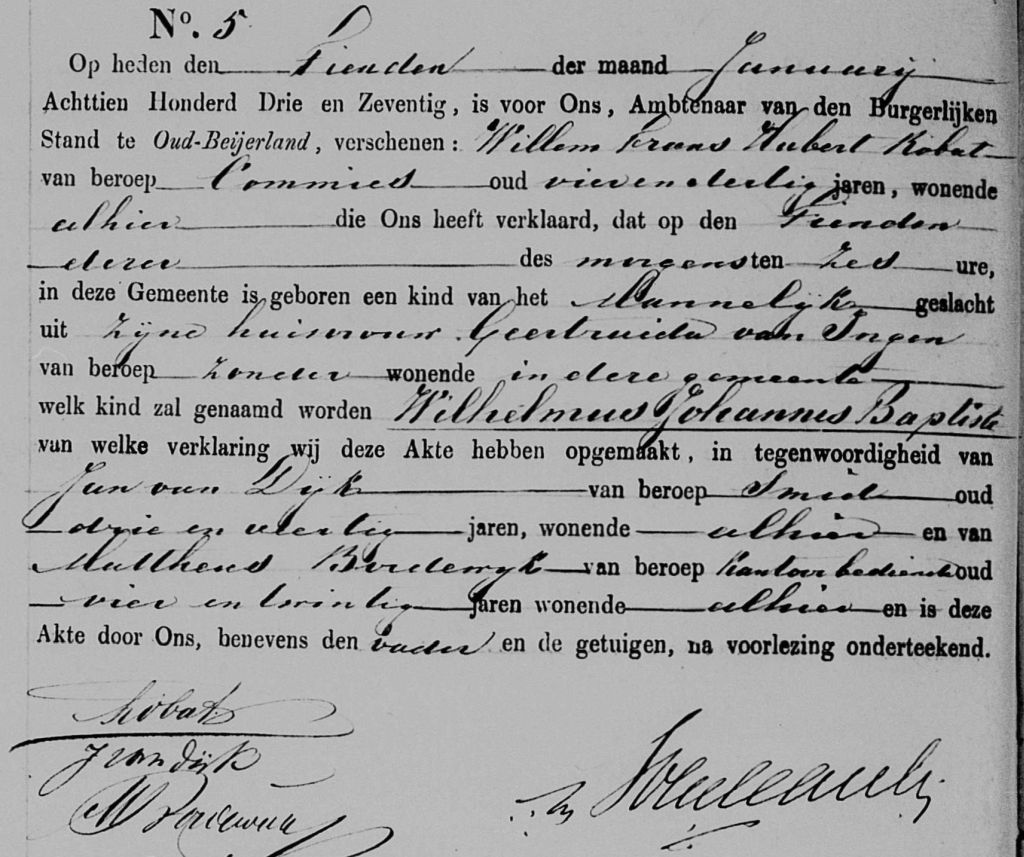 Nº. 5
Op heden den Tienden der maand Januarij
Achttien Honderd Drie en Zeventig, is voor Ons, Ambtenaar van den Burgerlijken
Stand te Oud-Beijerland, verschenen: Willem Frans Hubert Kobat
van beroep Commies oud vier en dertig jaren, wonende
alhier die Ons heeft verklaard, dat op den Tienden
dezer des morgens ten zes ure,
in deze Gemeente is geboren een kind van het Mannelijk geslacht
uit zijne huisvrouw Geertruida van Ingen
van beroep zonder wonende in deze gemeente
welk kind zal genaamd worden Wilhelmus Johannes Baptiste
van welke verklaring wij deze Akte hebben opgemaakt, in tegenwoordigheid van
Jan van Dijk van beroep Smid oud
drie en veertig jaren, wonende alhier en van
Mattheus van beroep kantoorbediende oud
vier en twintig jaren wonende alhier en is deze
Akte door Ons, benevens den vader en de getuigen, na voorlezing onderteekend.
Kobat
J van Dijk
M